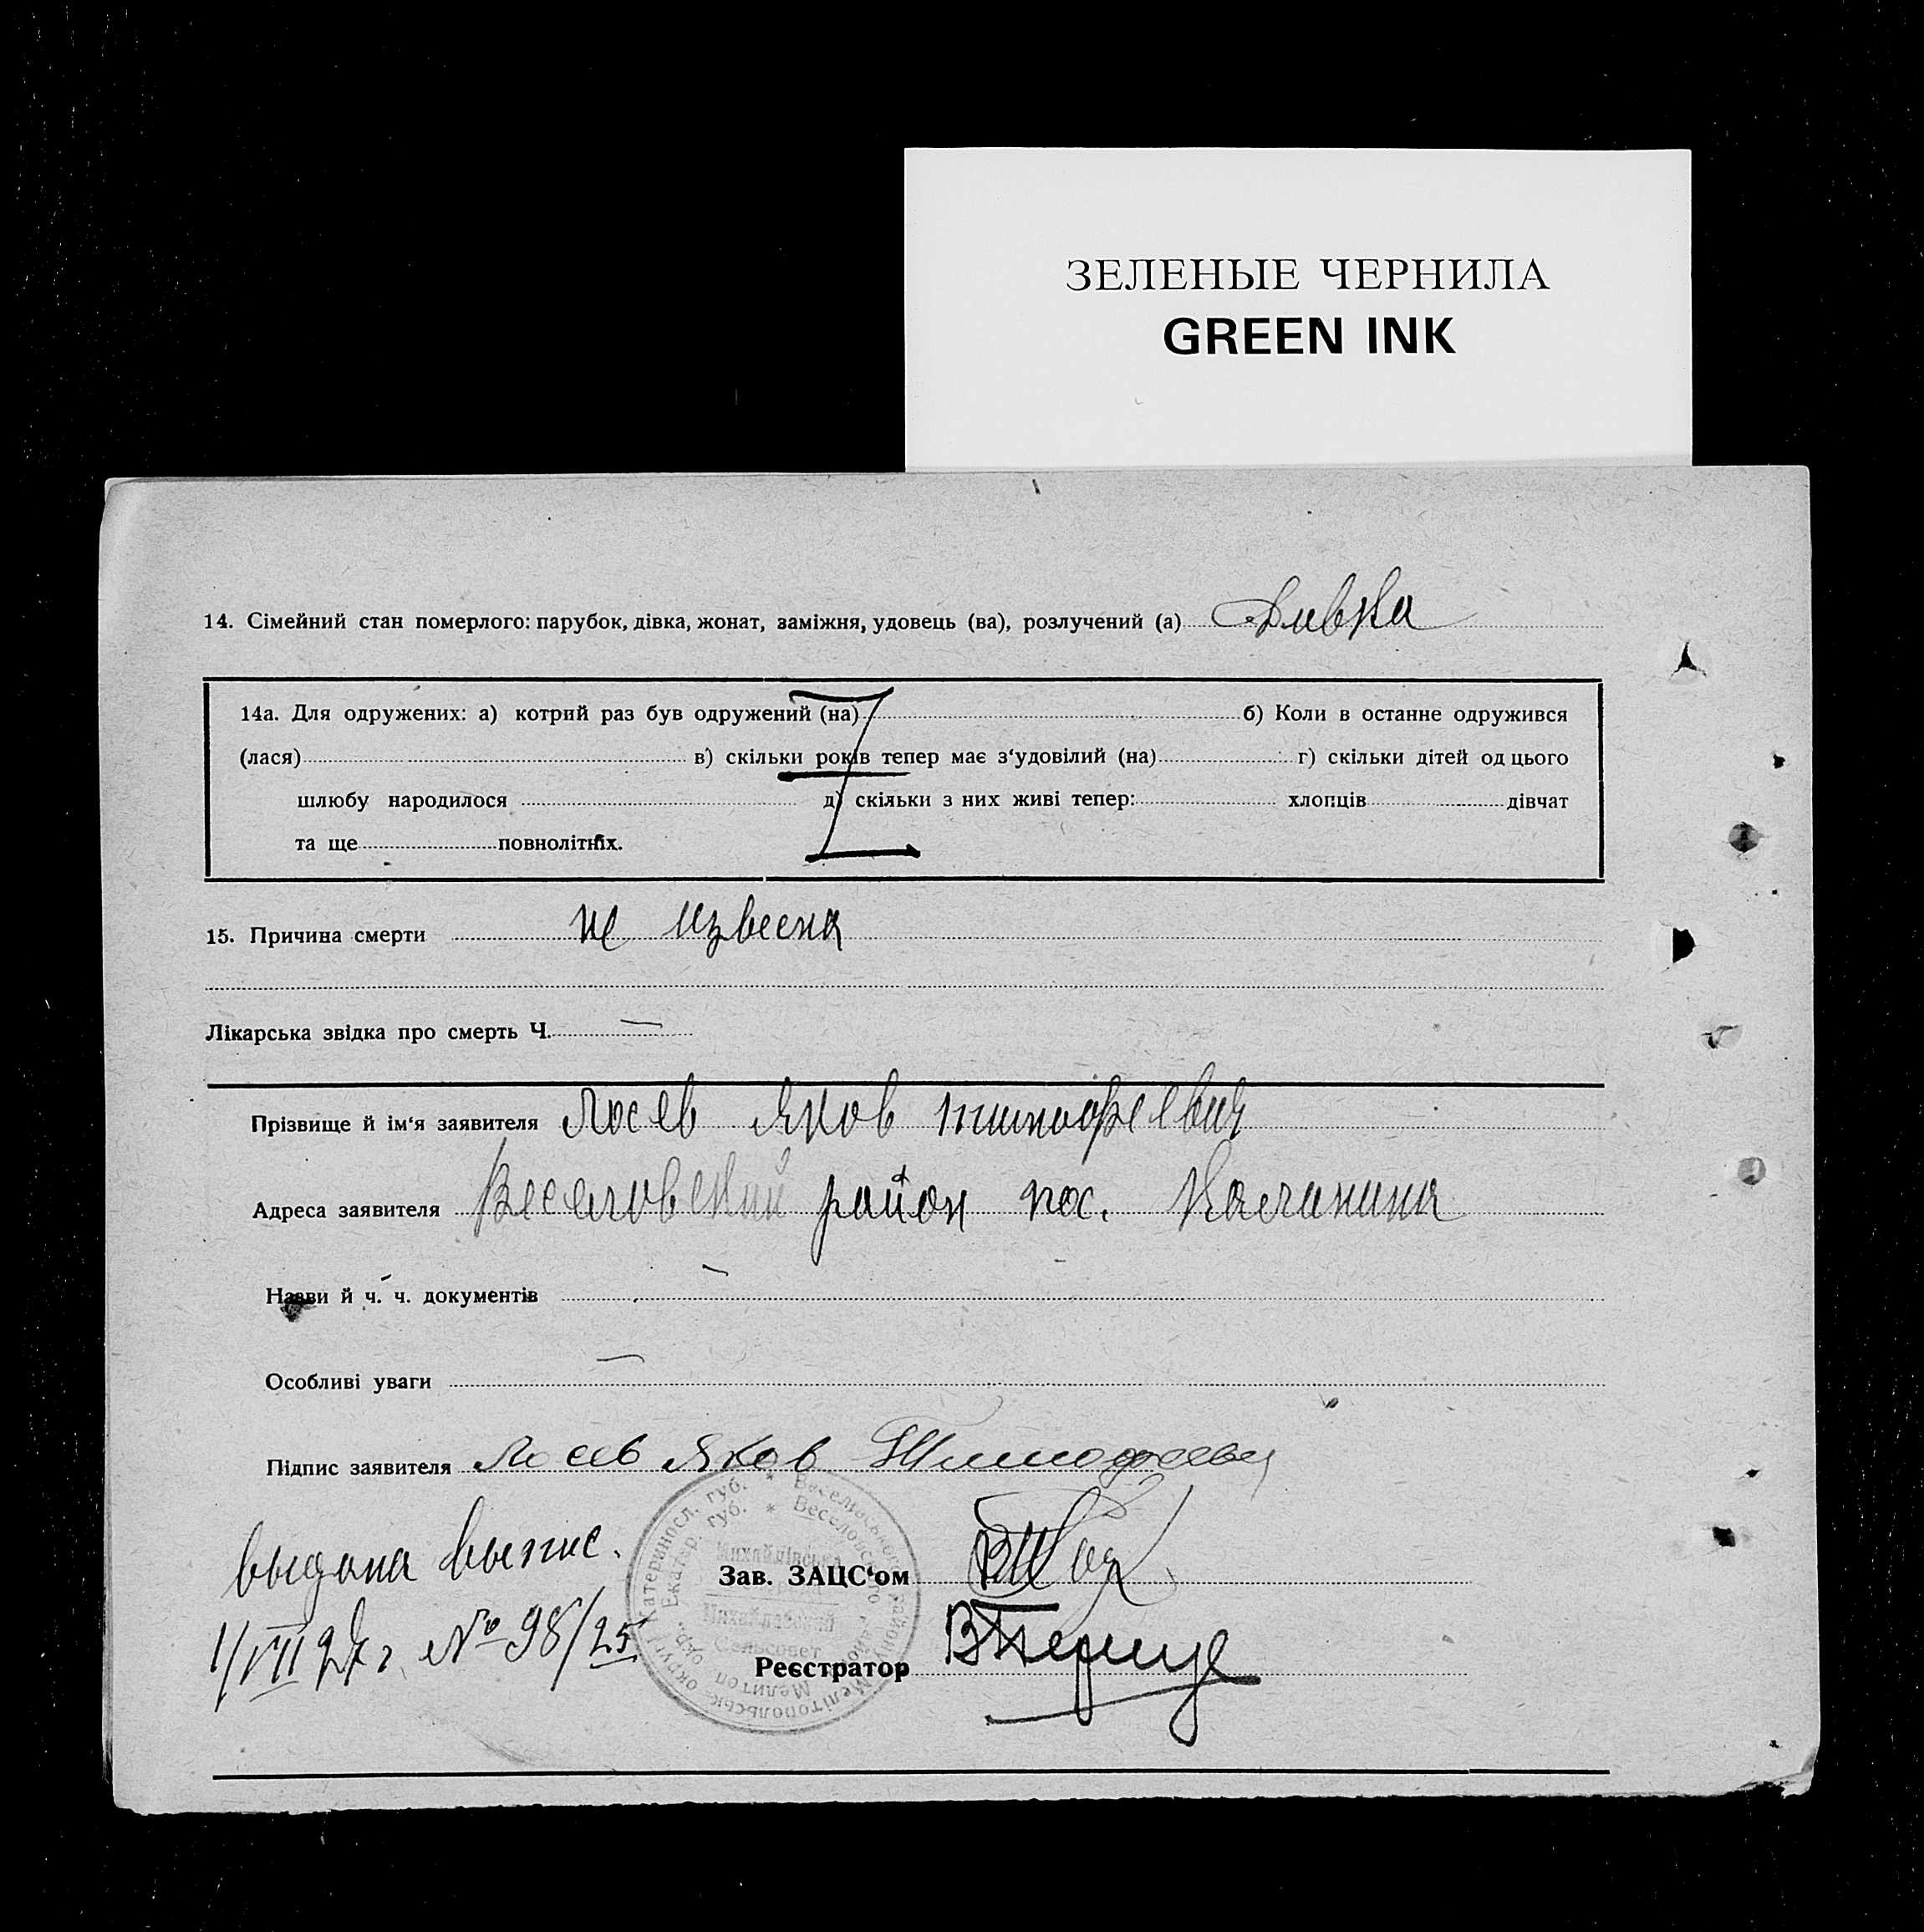 ЗЕЛЕНЫЕ ЧЕРНИЛА
GREEN INK
14. Сімейний стан померлого: парубок, дівка, жонат, заміжня, удовець (ва), розлучений (а) Дивка
14а. Для одружених: а) котрий раз був одружений (на) б) Коли в останне одружився
(лася) в) скільки років тепер має з‘удовілий (на) г) скільки дітей од цього
шлюбу народилося д) скільки з них живі тепер: хлопців дівчат
та ще повнолітніх.
15. Причина смерти не извесна
Лікарська звідка про смерть Ч. —
Прізвище й ім‘я заявителя Лосев Яков тимофеевич
Адреса заявителя Веселовский район пос. Калинина
Назви й ч. ч. документів —
Особливі уваги —
Підпис заявителя Лосев Яков Тимофееви
выдана выпис.
Зав. ЗАЦС‘ом
1/VII 27 г. № 98/25
Реєстратор
Катериносл. губ. * Весельвського району Мелітопольськ. округи
Екатер. губ. * Веселовского района Мелитоп. окр.
Михайлівська
Михайловский
Сельсовет